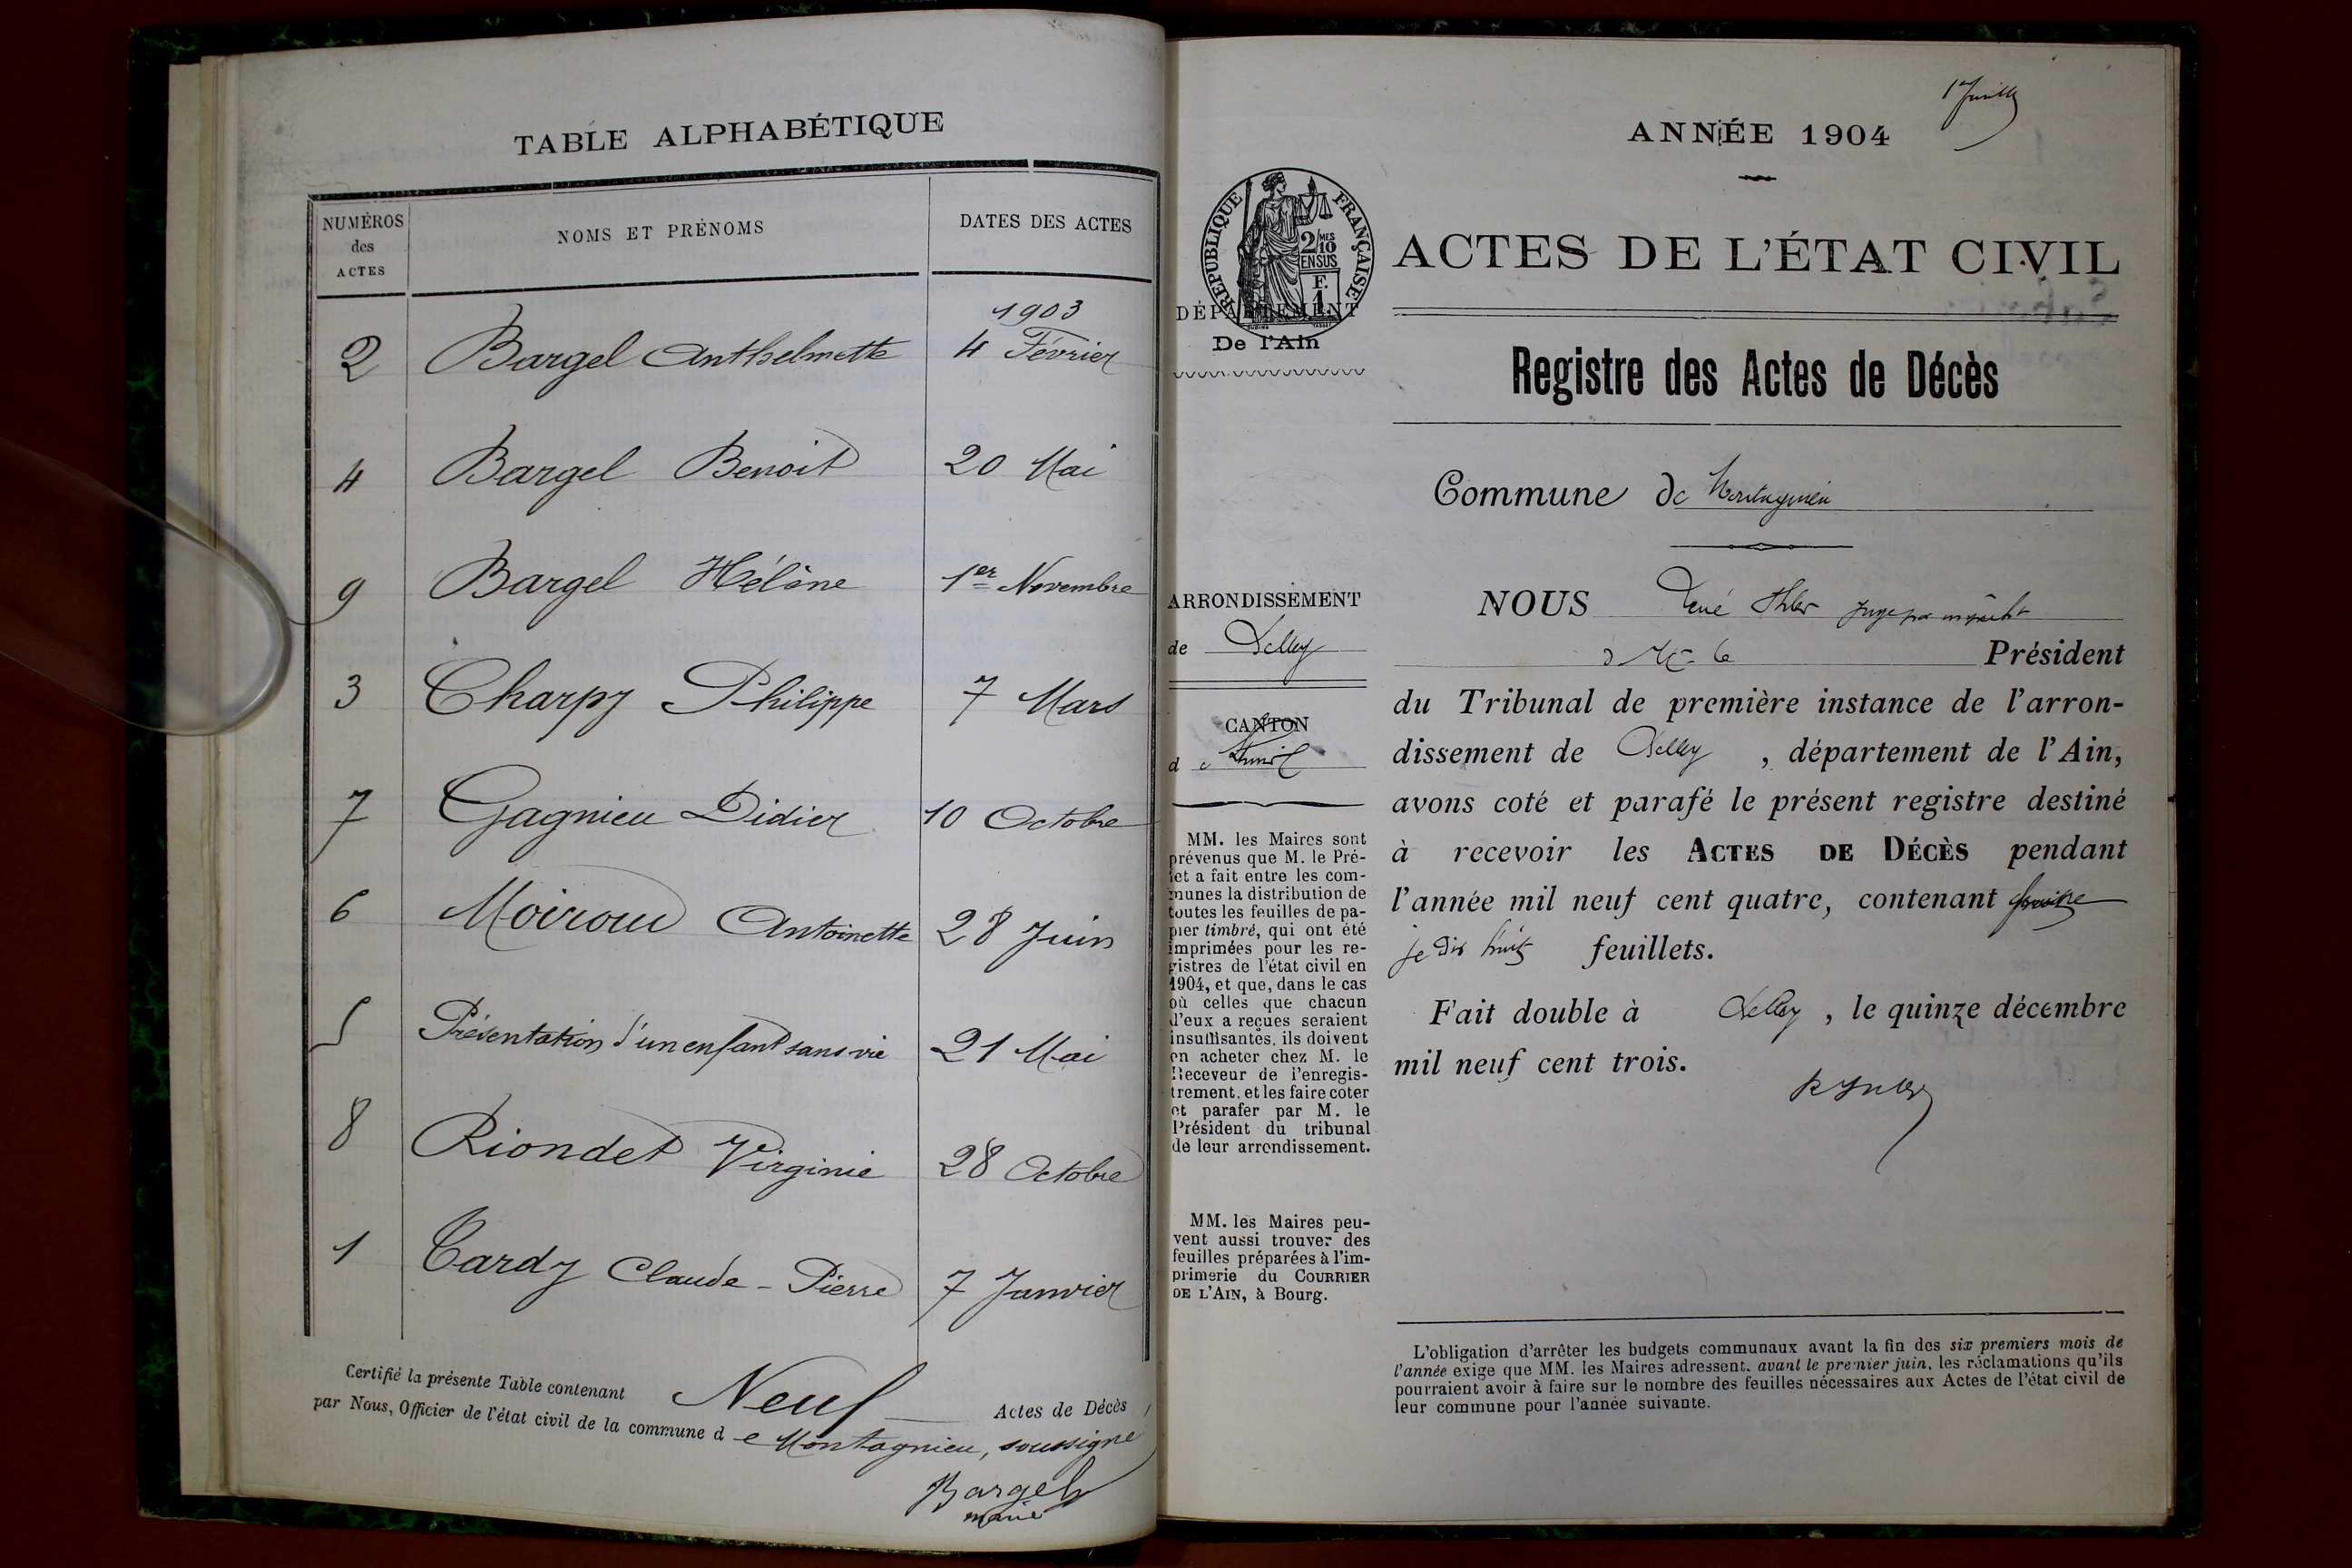 TABLE ALPHABÉTIQUE
NUMÉROS
des
ACTES
NOMS ET PRÉNOMS
DATES DES ACTES
1903
2 Bargel Anthelmette 4 Février
4 Bargel Benoit 20 Mai
9 Bargel Hélène 1er Novembre
3 Charpy Philippe 7 Mars
7 Gagnieu Didier 10 Octobre
6 Moiroud Antoinette 28 Juin
5 Présentation d'un enfant sans vie 21 Mai
8 Riondet Virginie 28 Octobre
1 Tardy Claude-Pierre 7 Janvier
Certifié la présente Table contenant Neuf Actes de Décès
par Nous, Officier de l'état civil de la commune de Montagnieu, soussigné
Bargel
maire
ANNÉE 1904
RÉPUBLIQUE FRANÇAISE
2/10 MES
EN SUS
F.
1.
ACTES DE L'ÉTAT CIVIL
DÉPARTEMENT
De l'Ain
Registre des Actes de Décès
Commune de Montagnieu
ARRONDISSEMENT
de Belley
CANTON
de
MM. les Maires sont
prévenus que M. le Pré-
fet a fait entre les com-
munes la distribution de
toutes les feuilles de pa-
pier timbré, qui ont été
imprimées pour les re-
gistres de l'état civil en
1904, et que, dans le cas
où celles que chacun
d'eux a reçues seraient
insuffisantes, ils doivent
en acheter chez M. le
Receveur de l'enregis-
trement, et les faire coter
et parafer par M. le
Président du tribunal
de leur arrondissement.
MM. les Maires peu-
vent aussi trouver des
feuilles préparées à l'im-
primerie du COURRIER
DE L'AIN, à Bourg.
NOUS René juge
Président
du Tribunal de première instance de l'arron-
dissement de Belley, département de l'Ain,
avons coté et parafé le présent registre destiné
à recevoir les ACTES DE DÉCÈS pendant
l'année mil neuf cent quatre, contenant
je dis huit feuillets.
Fait double à Belley, le quinze décembre
mil neuf cent trois.
L'obligation d'arrêter les budgets communaux avant la fin des six premiers mois de
l'année exige que MM. les Maires adressent, avant le premier juin, les réclamations qu'ils
pourraient avoir à faire sur le nombre des feuilles nécessaires aux Actes de l'état civil de
leur commune pour l'année suivante.